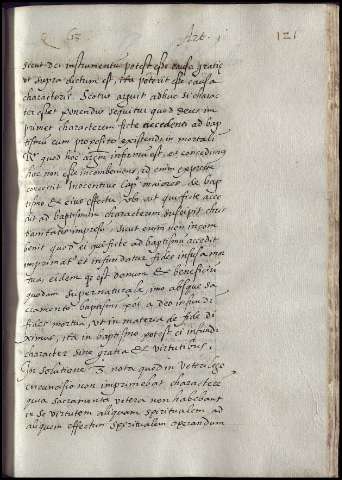 Q 63 Art. j 121
sicut dei instrumentū potest esse causa gratię
vt supra dictum est, ita poterit esse causa
characteris. Scotus arguit adhuc si charac
ter esset ponendus sequitur quod deus im
primet characterem ficte accedenti ad bap
tismū cum proposito existendi in mortali
Rr quod hoc argm̄ infirmū est, et concedimus
hoc non esse incombeniens, id enim expresse
concessit Inocentius cap. maiores, de bap
tismo & eius effectu vbi ait qui ficte acce
dit ad baptismum characterem suscipit chris
tianitatis impresū, sicut enim non incom
benit quod ei qui ficte ad baptismū accedit
imprimat et infundatur fides infusa mor
tua, eidem qe est donum & beneficiū
quodam supernaturale, imo absque sa
cramento baptismi pōt a deo infundi
fides mortua, vt in materia de fide di
ximus, ita in baptismo potest ei infundi
character sine gratia & virtutibus.
In solutione 3 nota quod in vet. lege
circumcisio non imprimebat characterē
quia sacramenta vetera non habebant
in se virtutem aliquam spiritualem ad
aliquem effectum spiritualem operandum